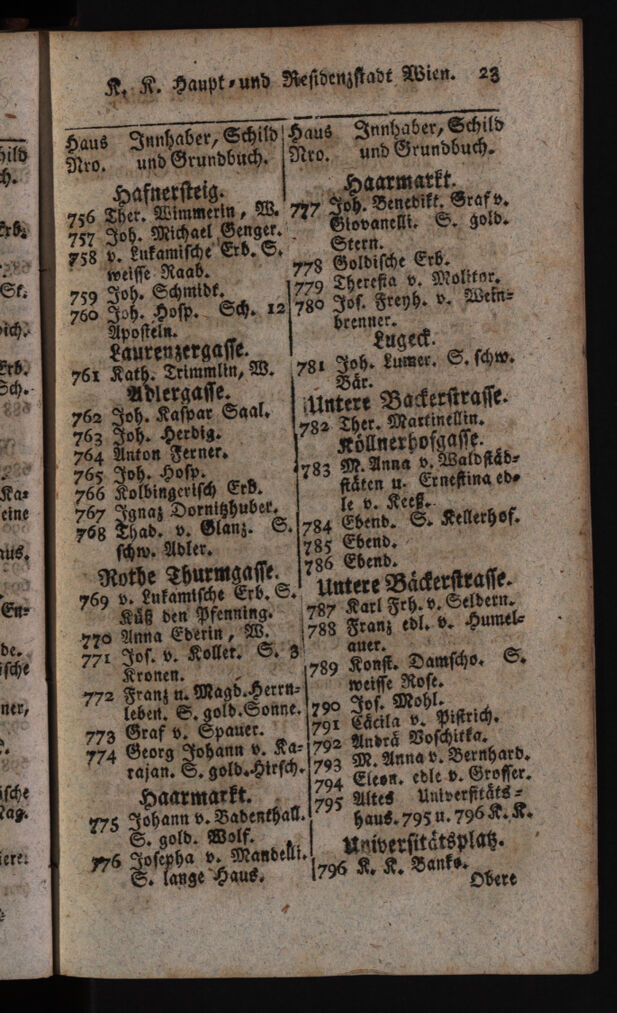 K. K. Haupt- und Residenzstadt Wien. 23
Haus Innhaber, Schild
Nro. und Grundbuch.
Hafnersteig.
756 Ther. Wimmerin, W.
757 Joh. Michael Genger.
758 v. Lukamische Erb. S.
weisse Raab.
759 Joh. Schmidt.
760 Joh. Hosp. Sch. 12
Aposteln.
Laurenzergasse.
761 Kath. Trimmlin, W.
Adlergasse.
762 Joh. Kaspar Saal.
763 Joh. Herdig.
764 Anton Ferner.
765 Joh. Hosp.
766 Kolbingerisch Erb.
767 Ignaz Dornitzhuber.
768 Thad. v. Glanz. S.
schw. Adler.
Rothe Thurmgasse.
769 v. Lukamische Erb. S.
Küß den Pfenning.
770 Anna Ederin, W.
771 Jos. v. Koller. S. 3
Kronen.
772 Franz u. Magd. Herrn-
leben. S. gold. Sonne.
773 Graf v. Spauer.
774 Georg Johann v. Ka-
rajan. S. gold. Hirsch.
Haarmarkt.
775 Johann v. Badenthall.
S. gold. Wolf.
776 Josepha v. Mandelli.
S. lange Haus.
Haus Innhaber, Schild
Nro. und Grundbuch.
Haarmarkt.
777 Joh. Benedikt. Graf v.
Giovanelli. S. gold.
Stern.
778 Goldische Erb.
779 Theresia v. Molitor.
780 Jos. Freyh. v. Wein-
brenner.
Lugeck.
781 Joh. Lumer. S. schw.
Bär.
Untere Backerstrasse.
782 Ther. Martinellin.
Köllnerhofgasse.
783 M. Anna v. Waldstäd-
stäten u. Ernestina ed-
le v. Keeß.
784 Ebend. S. Kellerhof.
785 Ebend.
786 Ebend.
Untere Bäckerstrasse.
787 Karl Frh. v. Seldern.
788 Franz edl. v. Humel-
auer.
789 Konst. Damscho. S.
weisse Rose.
790 Jos. Mohl.
791 Cäcila v. Pistrich.
792 Andrä Poschitka.
793 M. Anna v. Bernhard.
794 Eleon. edle v. Grosser.
795 Altes Universitäts-
haus. 795 u. 796 K. K.
Universitätsplatz.
796 K. K. Banko.
Obere